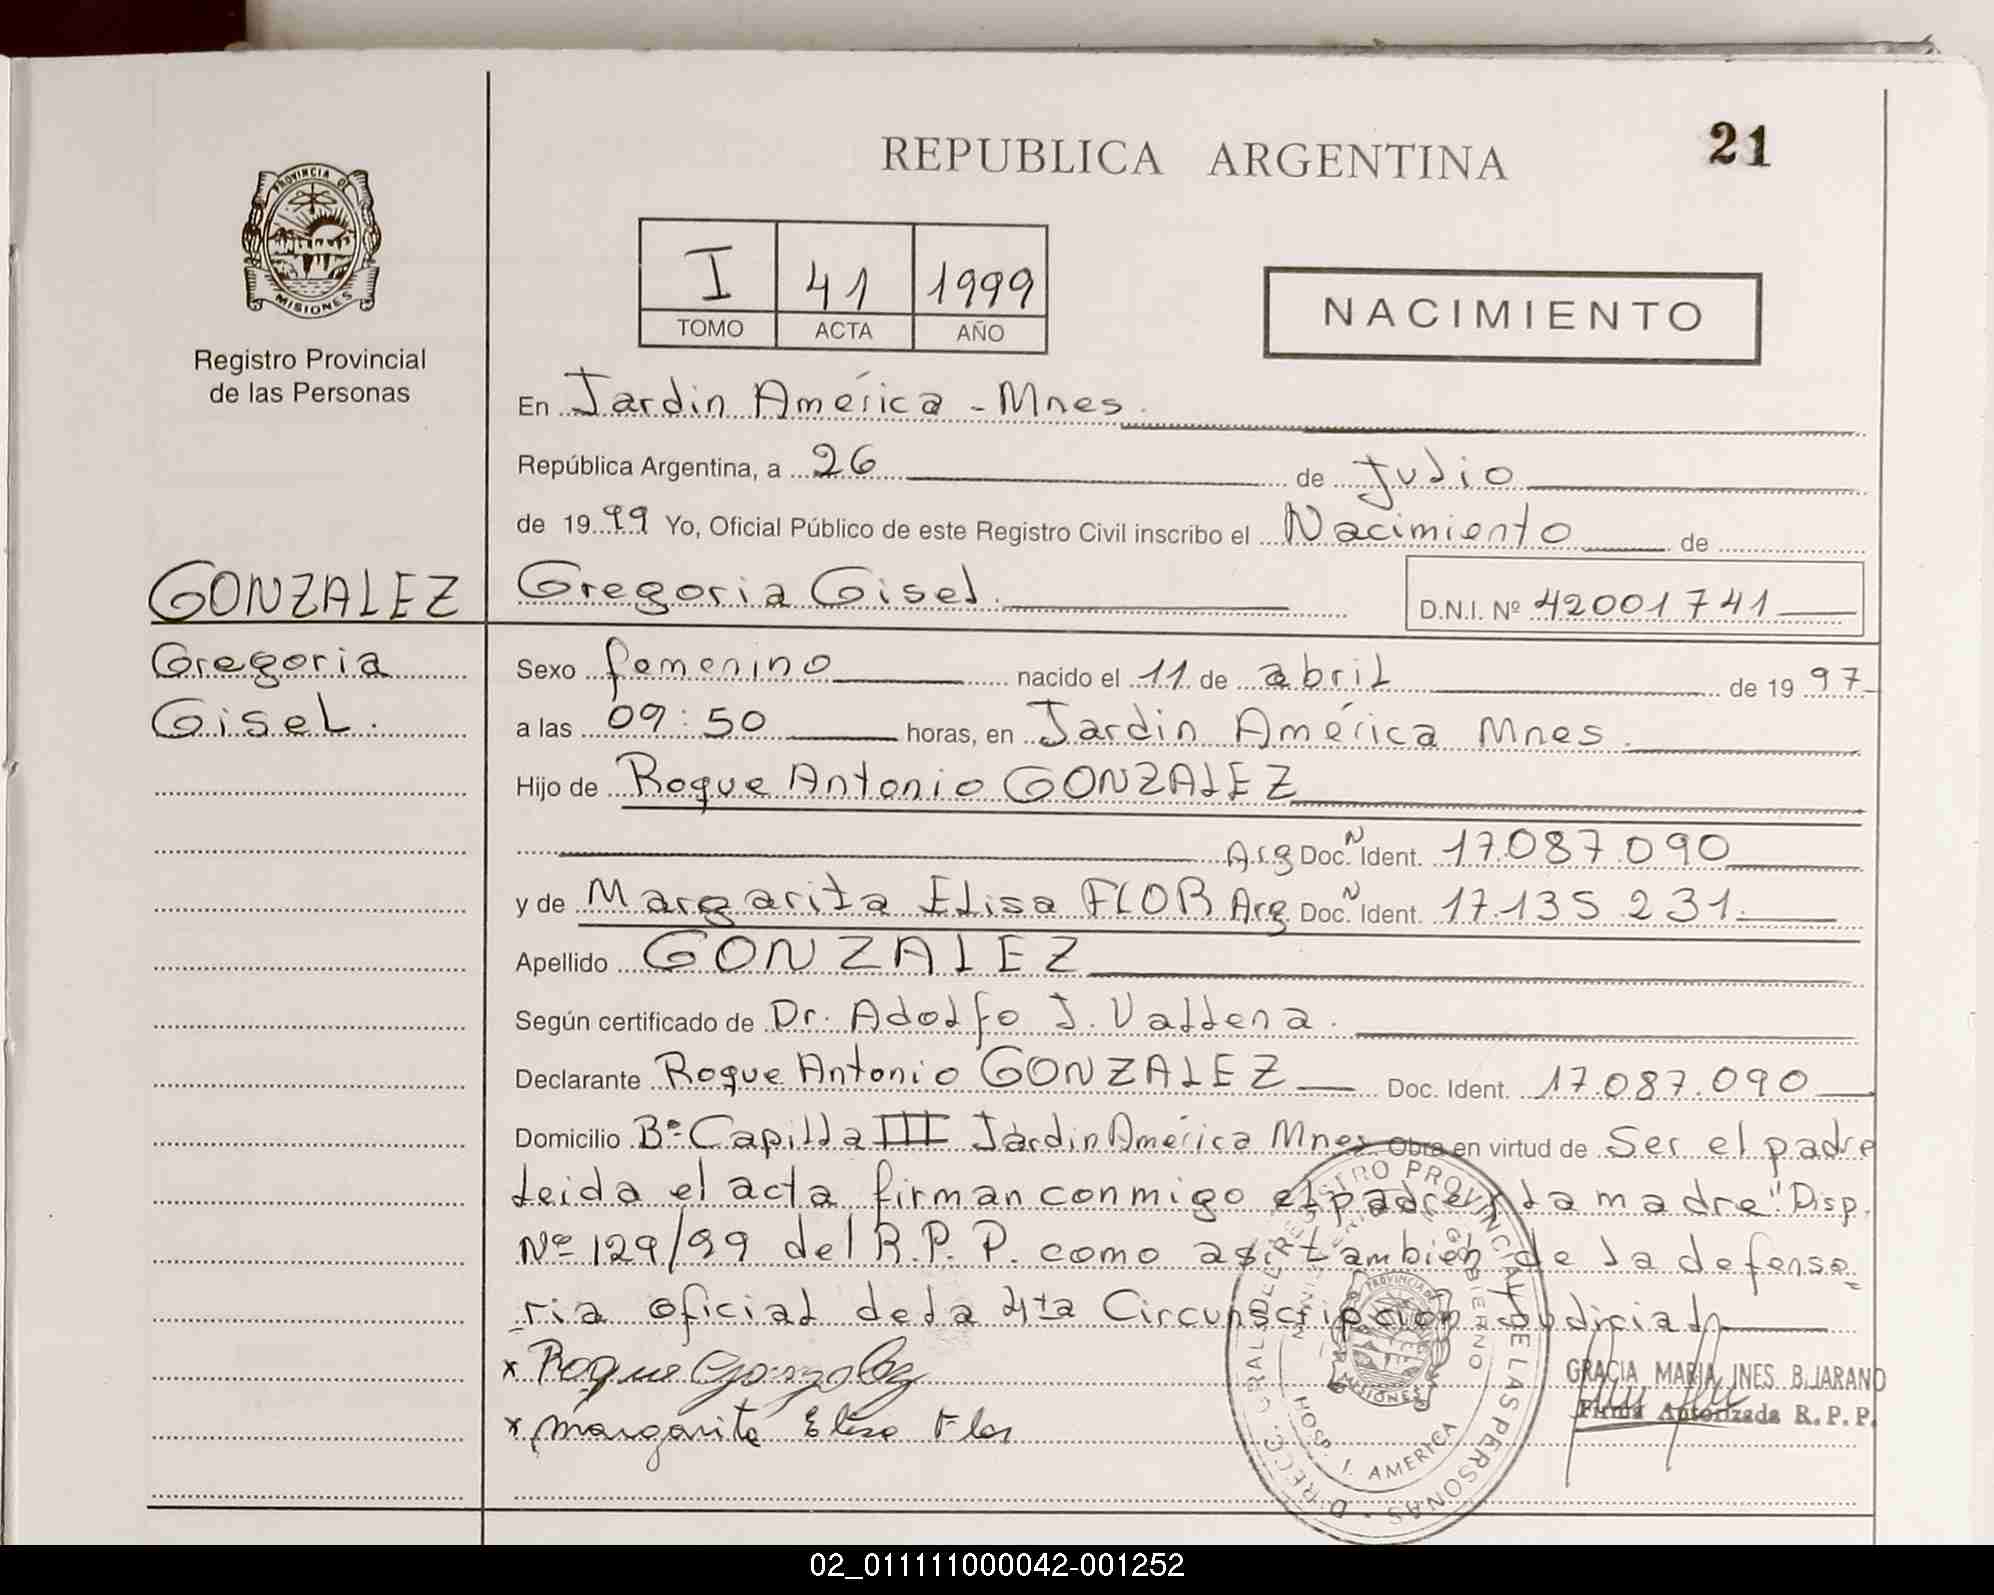 REPUBLICA ARGENTINA
21
PROVINCIA DE
MISIONES
Registro Provincial
de las Personas
I 41 1999
TOMO ACTA AÑO
NACIMIENTO
En Jardin América - Mnes.
República Argentina, a 26 de Julio
de 1999 Yo, Oficial Público de este Registro Civil inscribo el Nacimiento de
GONZALEZ Gregoria Gisel. D.N.I. Nº 42001741
Gregoria
Gisel.
Sexo femenino nacido el 11 de abril de 1997
a las 09:50 horas, en Jardin América Mnes.
Hijo de Roque Antonio GONZALEZ
Arg Doc. N Ident. 17.087.090
y de Margarita Elisa FLOR Arg Doc. N Ident. 17.135.231.
Apellido GONZALEZ
Según certificado de Dr. Adolfo J. Valdena.
Declarante Roque Antonio GONZALEZ Doc. Ident. 17.087.090
Domicilio Bº Capilla III Jardin América Mnes Obra en virtud de Ser el padre
Leida el acta firman conmigo el padre y la madre "Disp.
Nº 129/99 del R.P.P. como asi tambien de la defenso
ria oficial de la 4ta Circunscripcion Judicial
x Roque Gonzalez
x Margarita Elisa Flor
DIRECC. GRAL. DEL REGISTRO PROVINCIAL DE LAS PERSONAS
MINISTERIO DE GOBIERNO
PROVINCIA
MISIONES
HOSP. J. AMERICA
GRACIA MARIA INES BEJARANO
Firma Autorizada R.P.P.
02_011111000042-001252